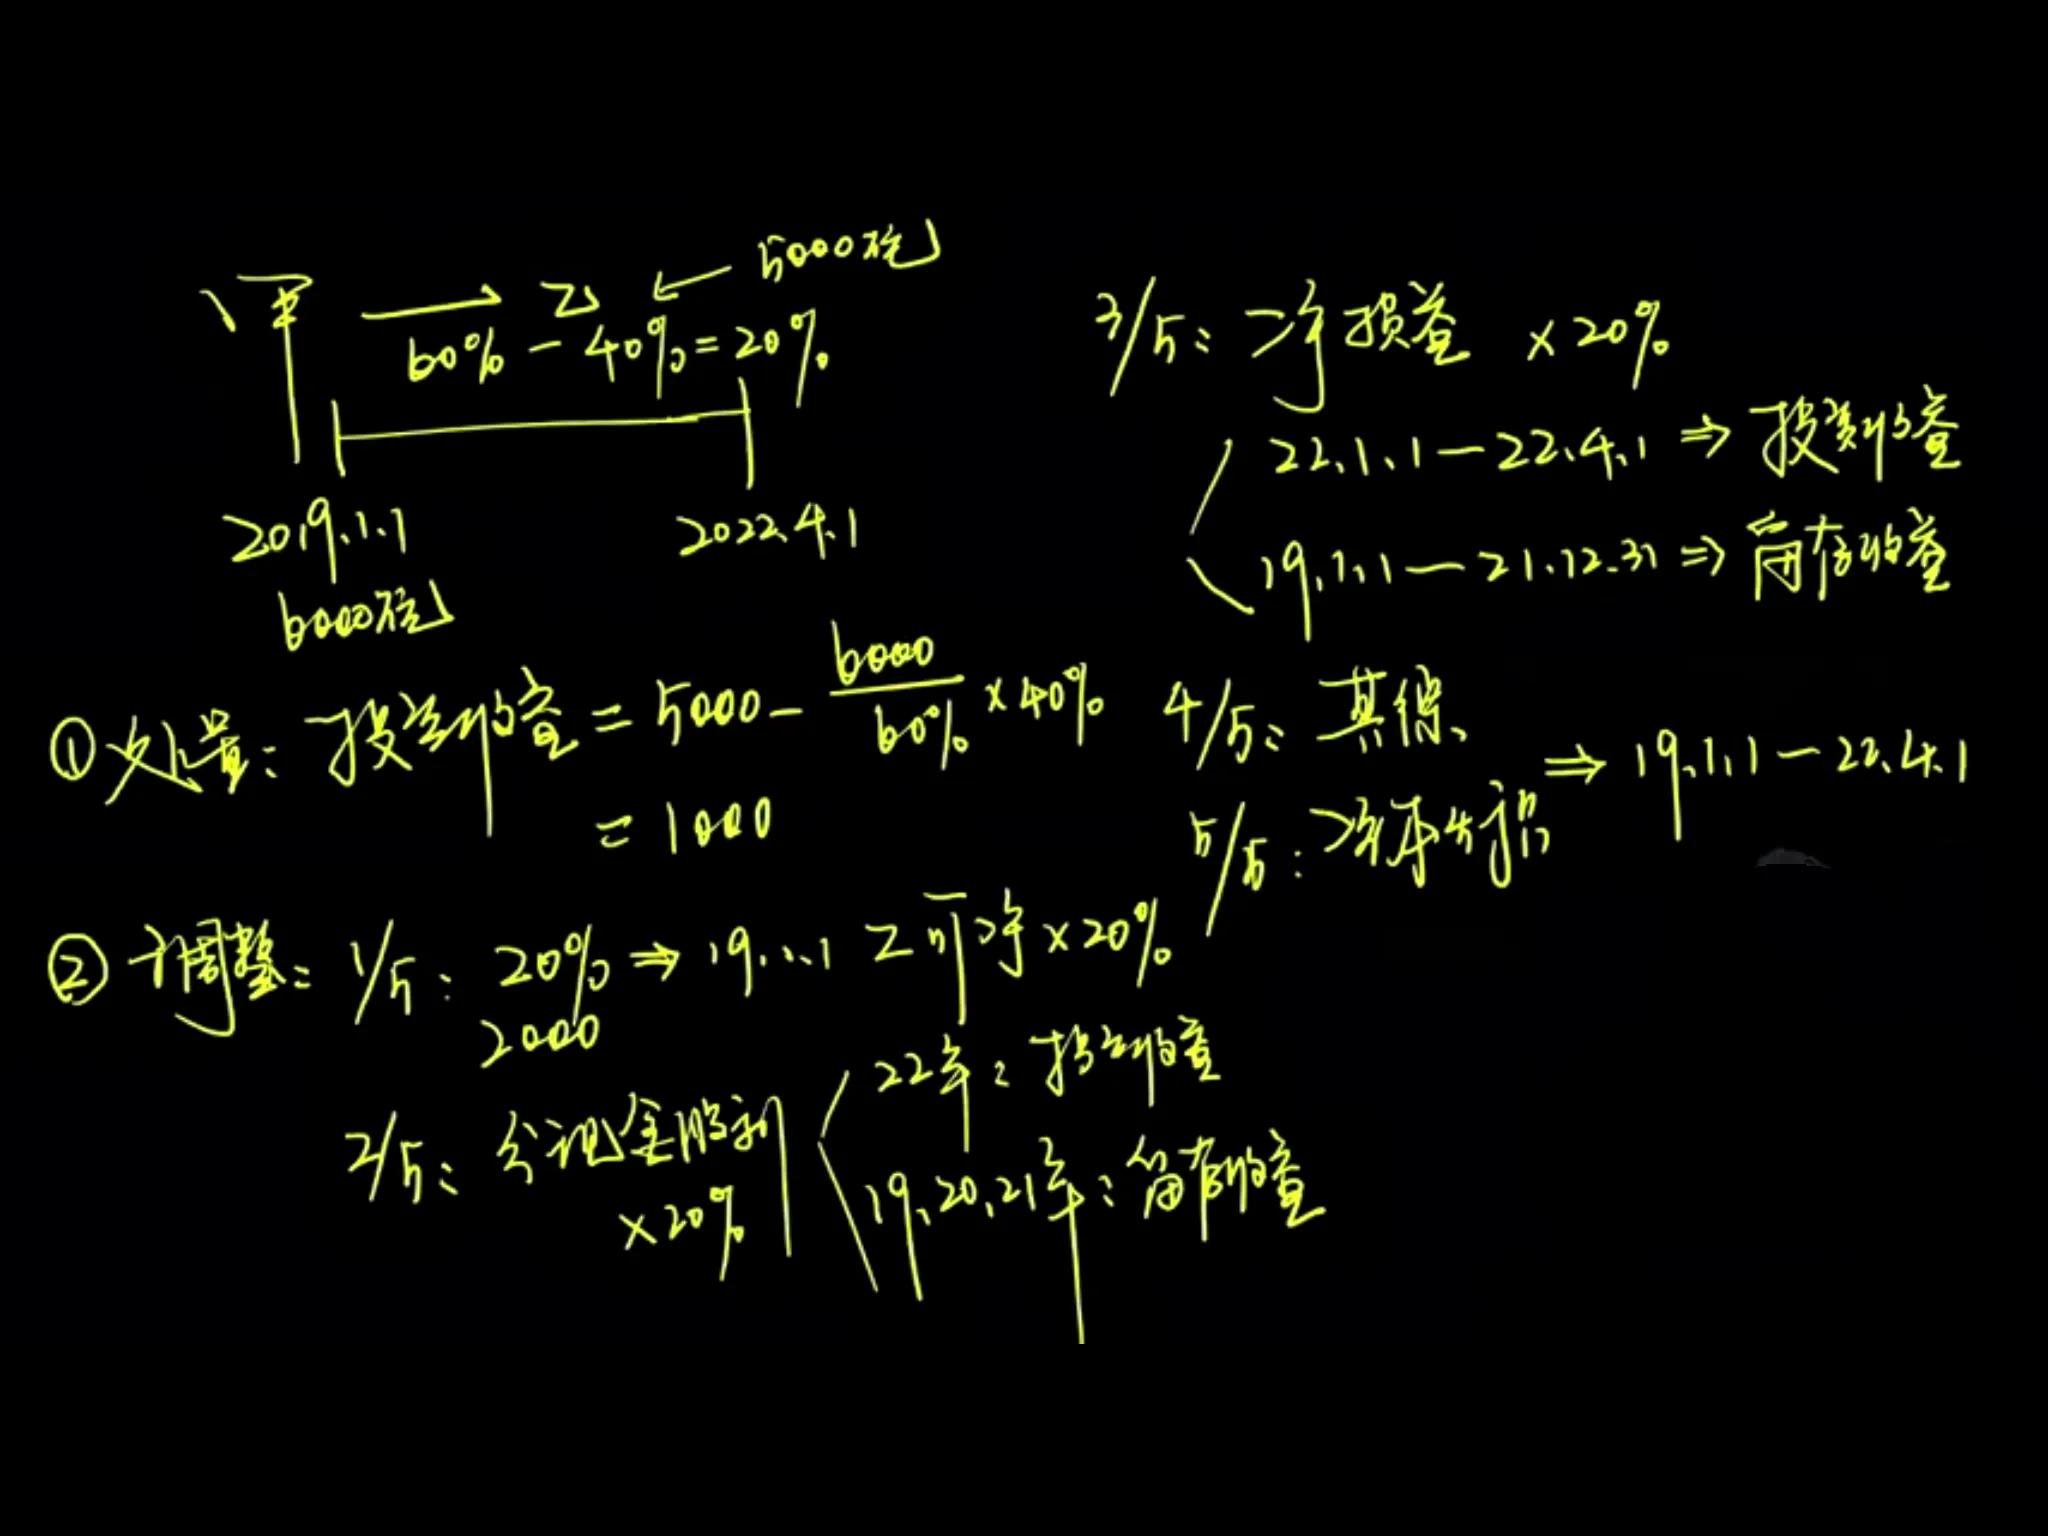 甲 → 乙 ← 5000万元
60% - 40% = 20%
2019.1.1 2022.4.1
6000万元
① 处置: 投资收益 = 5000 - 6000/60% × 40%
= 1000
② 调整: 1/5: 20% ⇒ 19.1.1 乙可净 × 20%
2000
2/5: 分现金股利 × 20%
22年: 投资收益
19、20、21年: 留存收益
3/5: 净损益 × 20%
22.1.1 - 22.4.1 ⇒ 投资收益
19.1.1 - 21.12.31 ⇒ 留存收益
4/5: 其综、
5/5: ⇒ 19.1.1 - 22.4.1